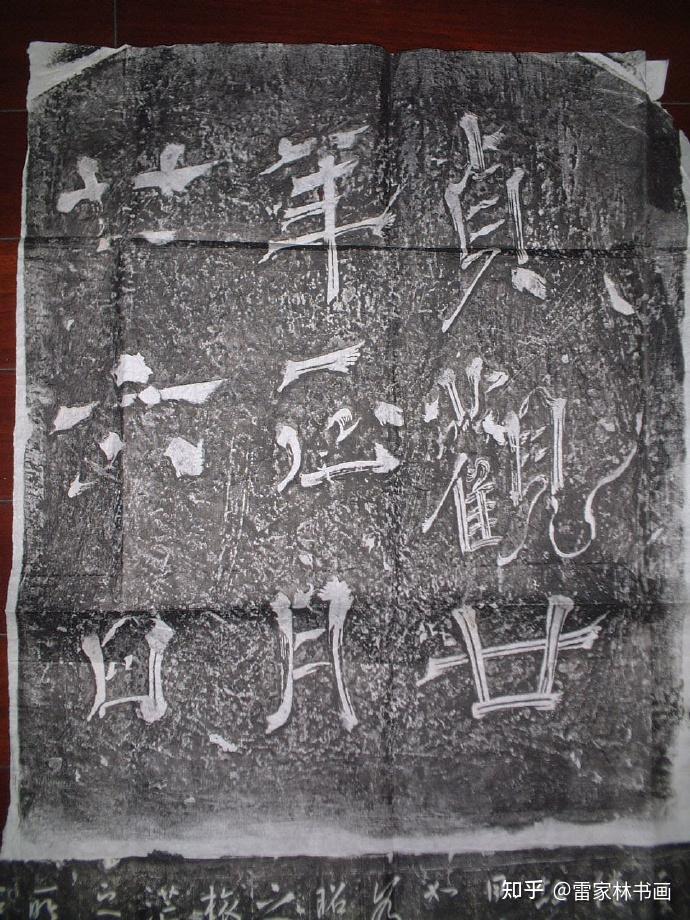 貞觀廿
年正月
廿六日
知乎 @雷家林书画